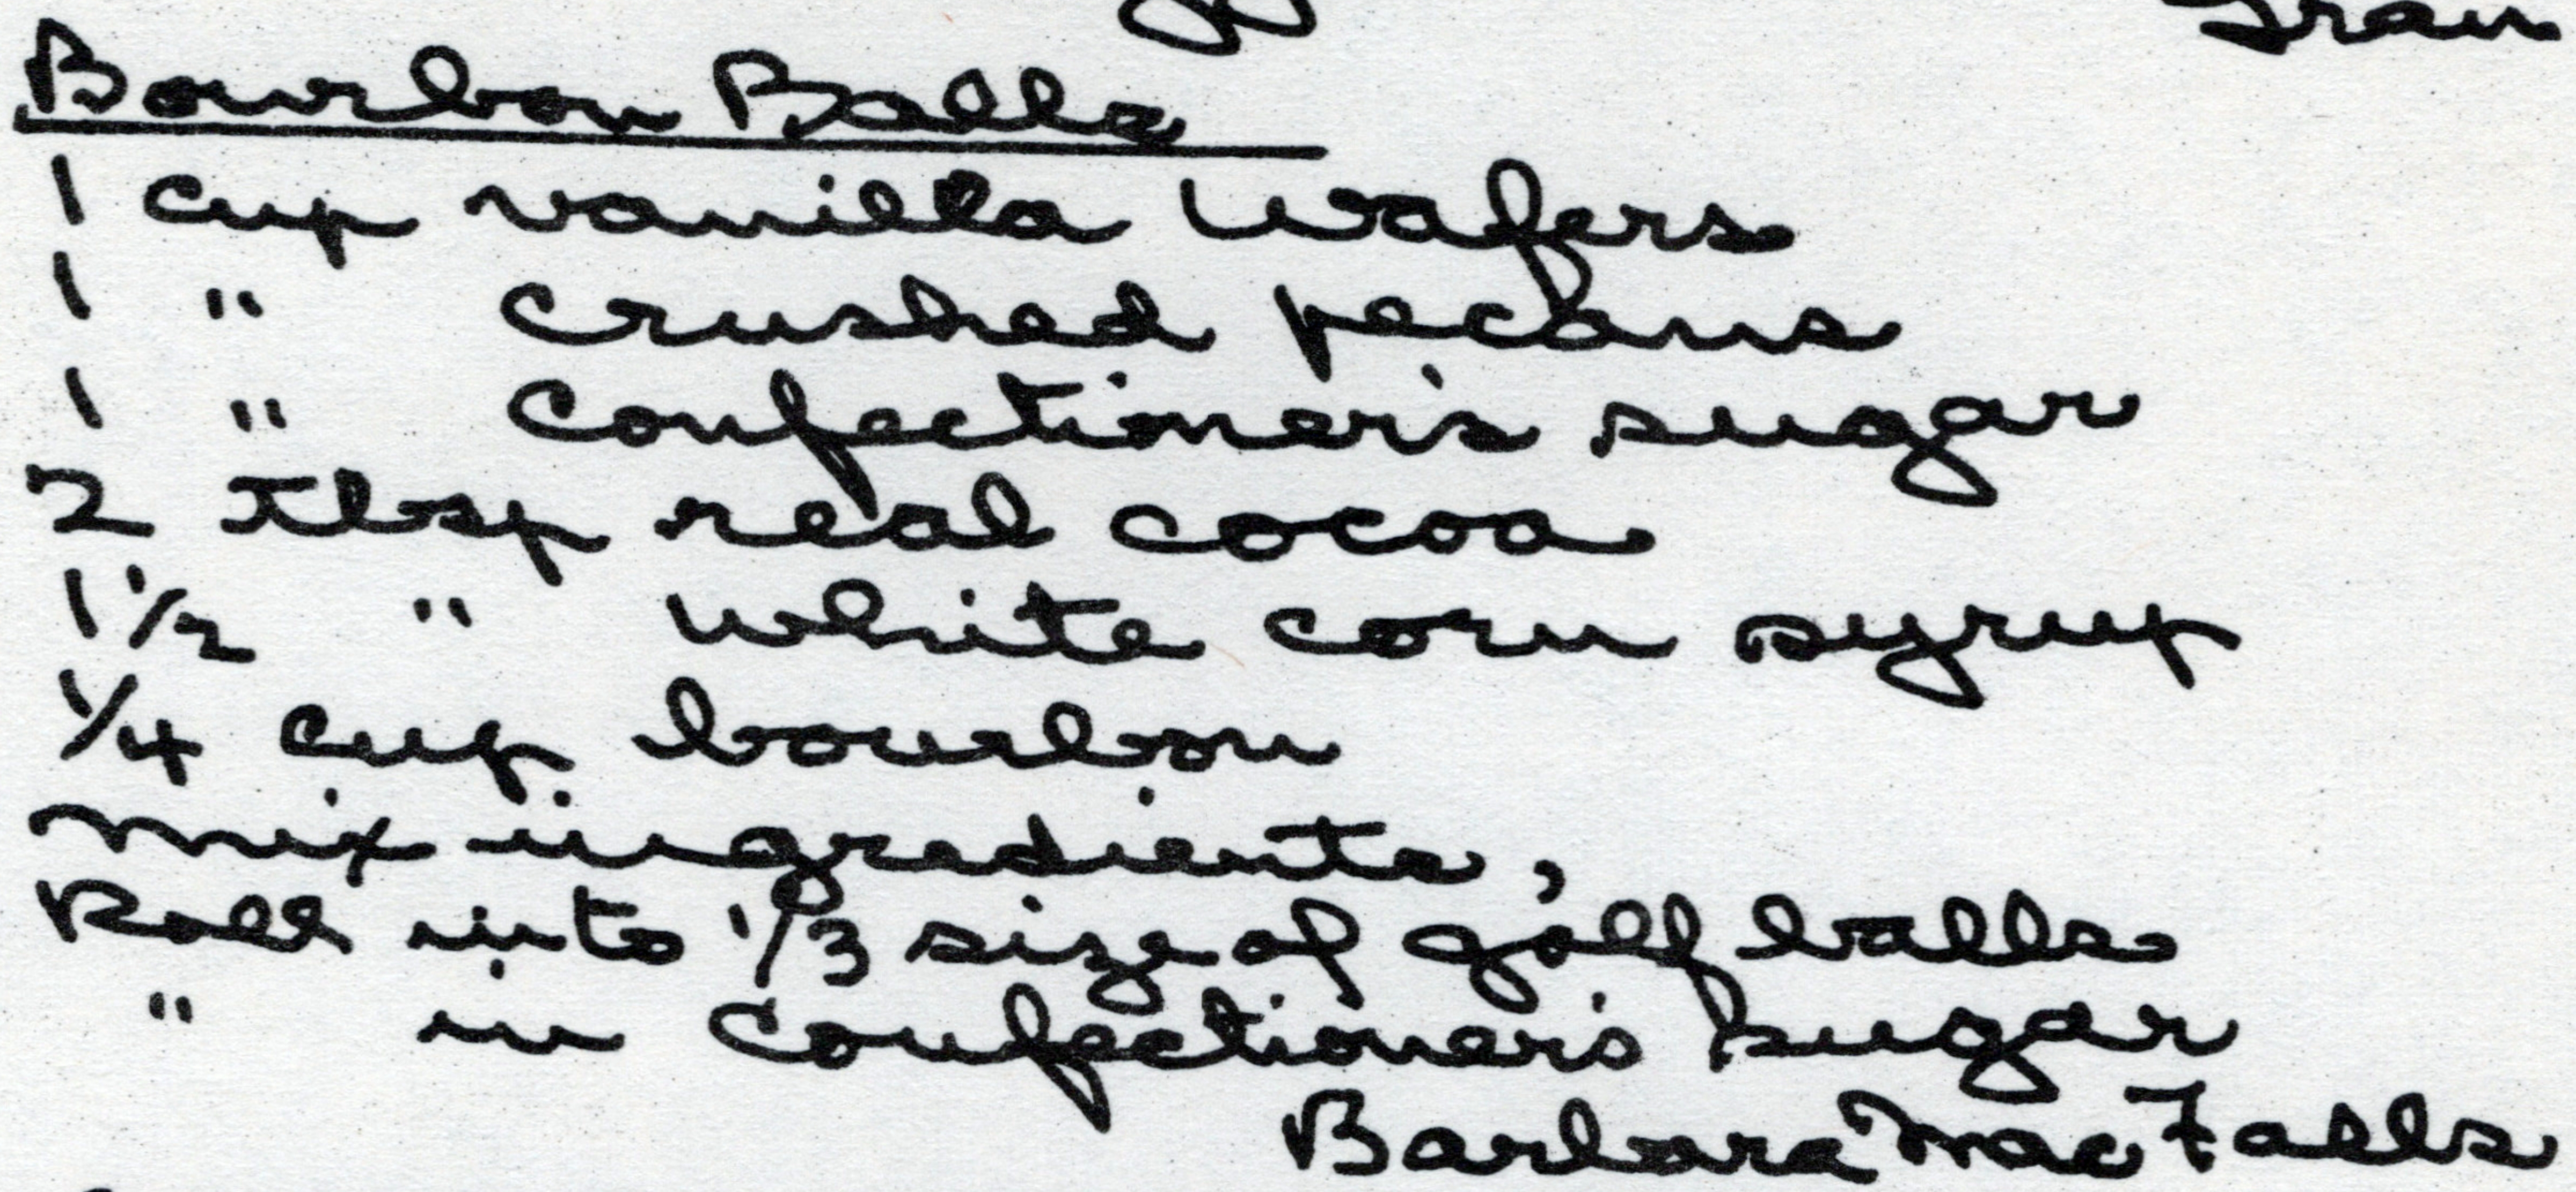 Gran
Bourbon Balls
1 cup vanilla wafers
1 " crushed pecans
1 " confectioner's sugar
2 tblsp real cocoa
1 1/2 " white corn syrup
1/4 cup bourbon
mix ingredients,
Roll into 1/3 size of golf balls
" in confectioner's sugar
Barbara MacFalls